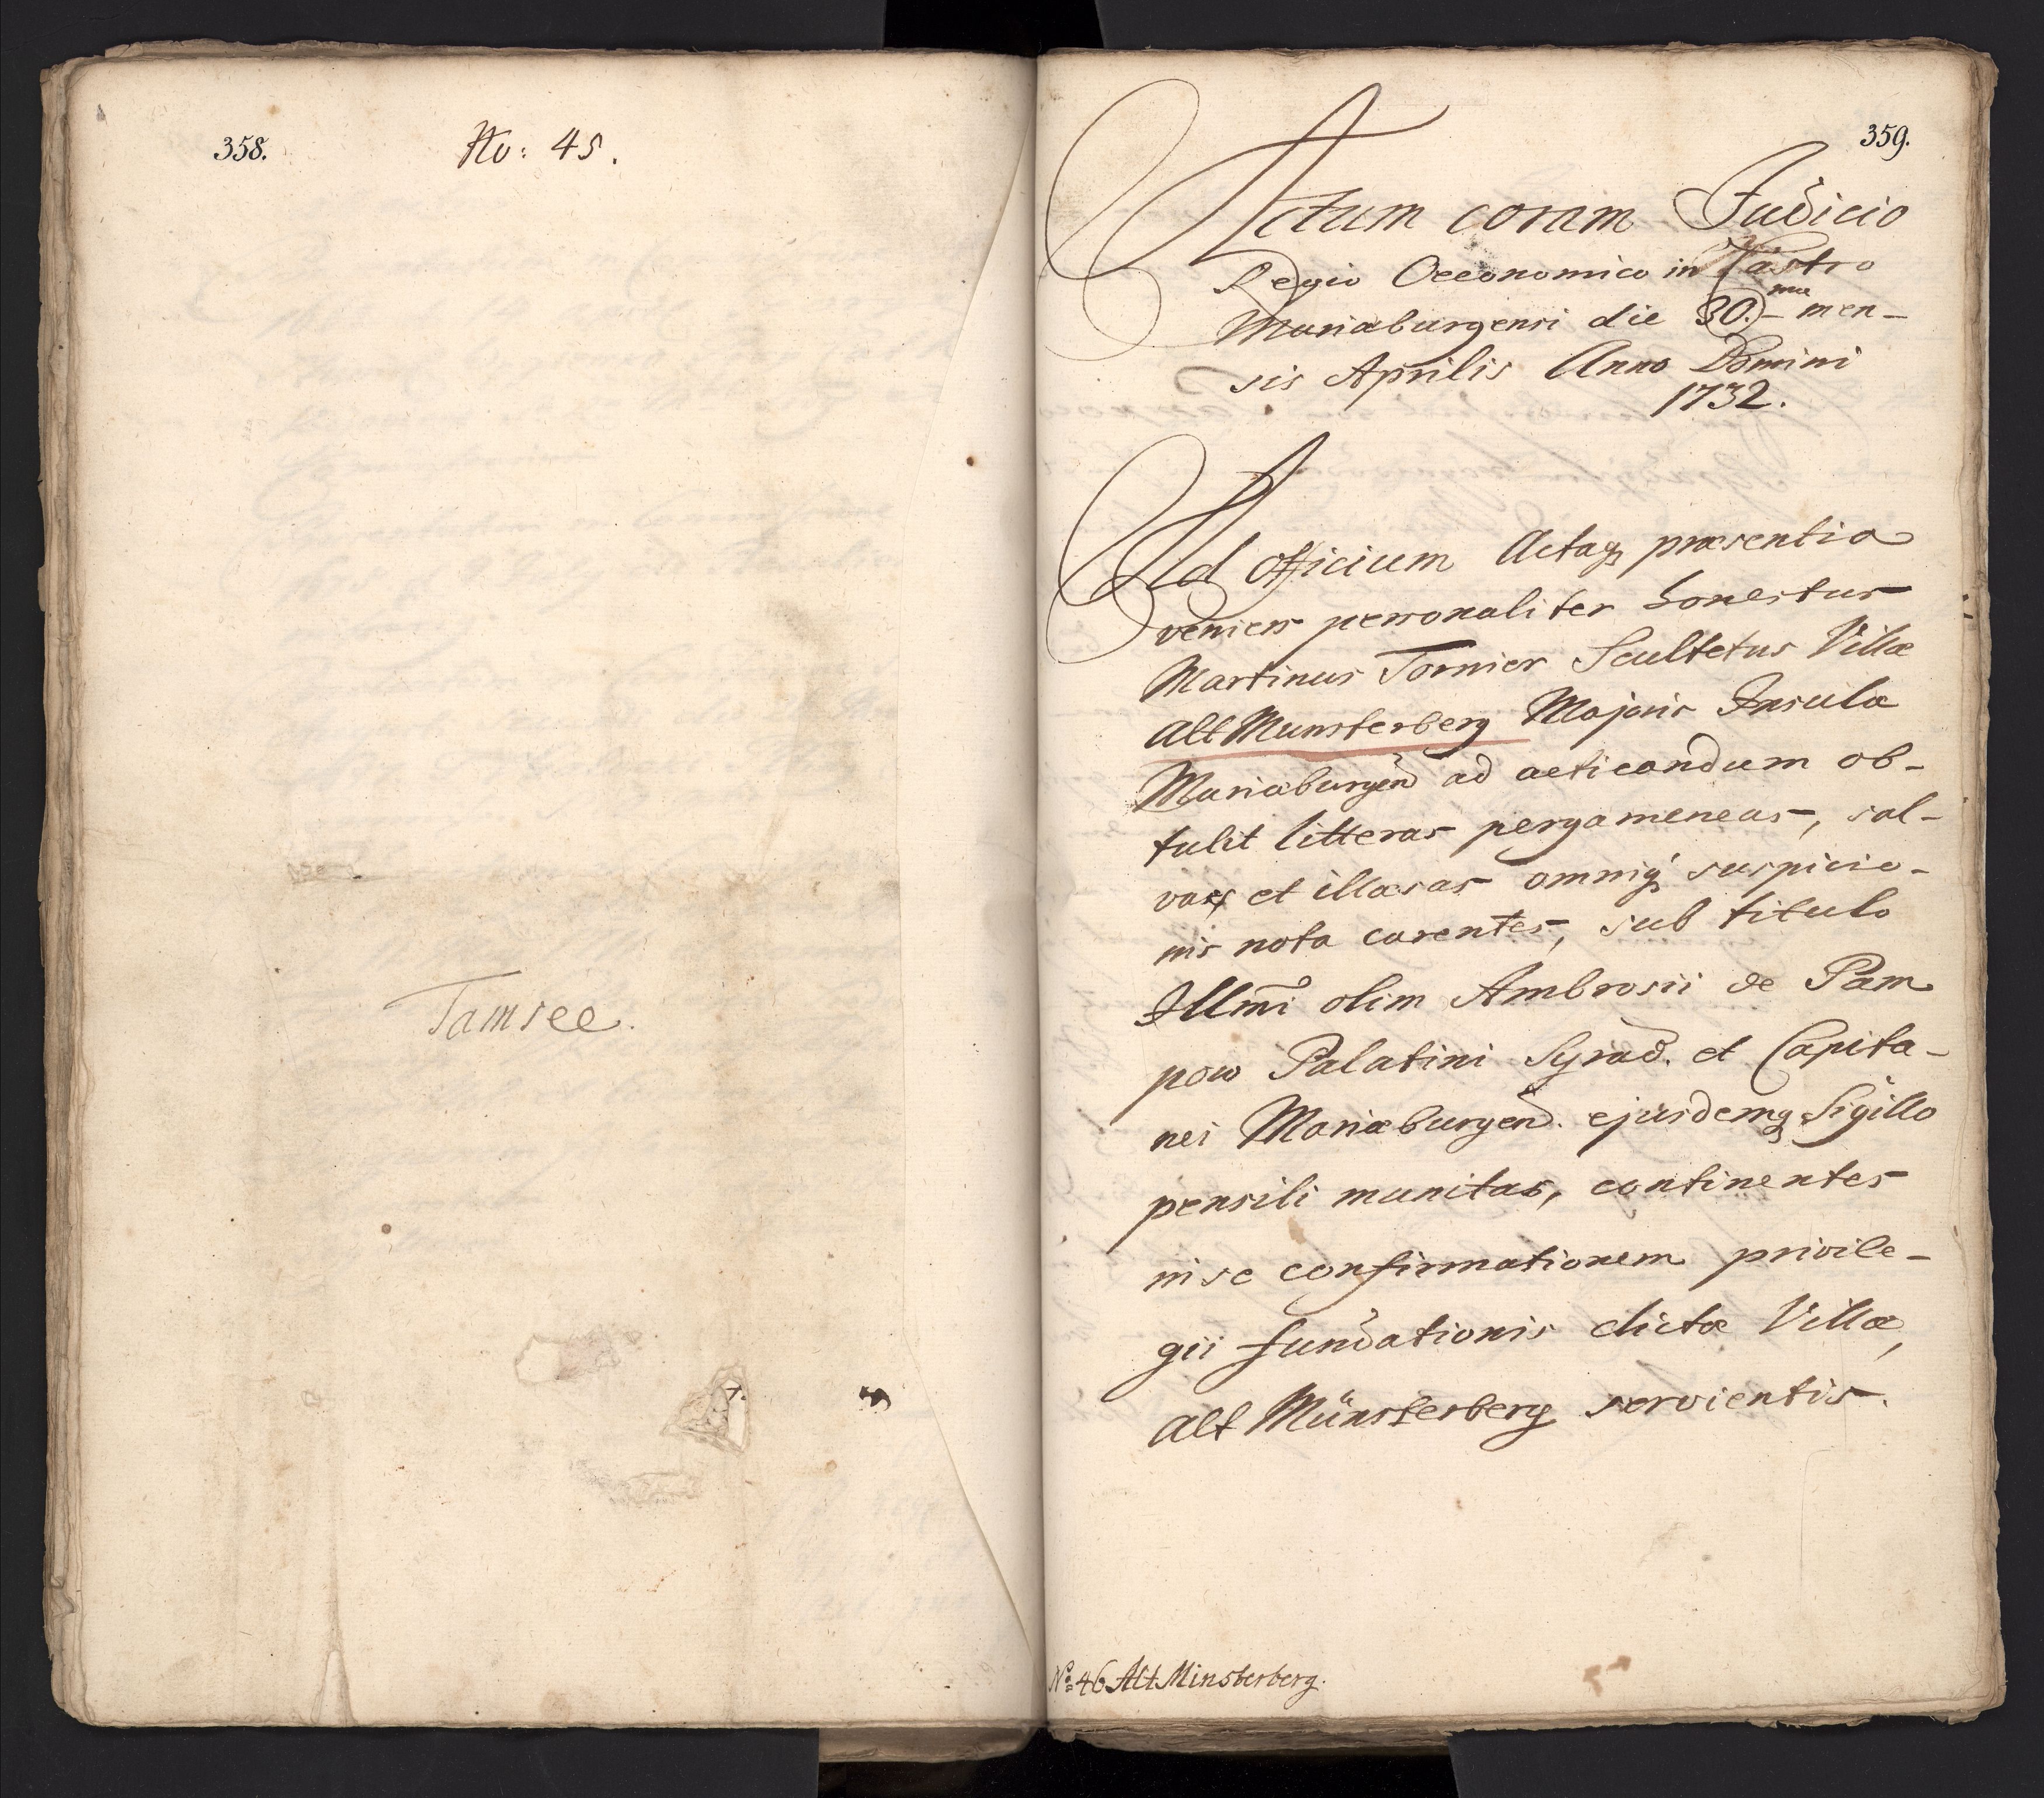 358.
No: 45.
Tamsee.
359.
Actum coram Judicio
Regio Oeconomico in Castro
Mariæburgensi die 30.mo men-
sis Aprilis Anno Domini
1732.
Ad Officium Actaq præsentia
veniens personaliter honestus
Martinus Tornier Scultetus Villæ
Alt Munsterberg Majoris Insulæ
Mariæburgend ad acticandum ob-
tulit litteras pergameneas, sal-
vas et illæsas omniq suspicio-
nis nota carentes, sub titulo
Illmi olim Ambrosii de Pam
pow Palatini Syrad. et Capita-
nei Mariæburgend. ejusdemq Sigillo
pensili munitas, continentes
in se confirmationem privile-
gii fundationis dictæ Villæ,
Alt Münsterberg servientis.
No: 46 Alt Minsterberg.